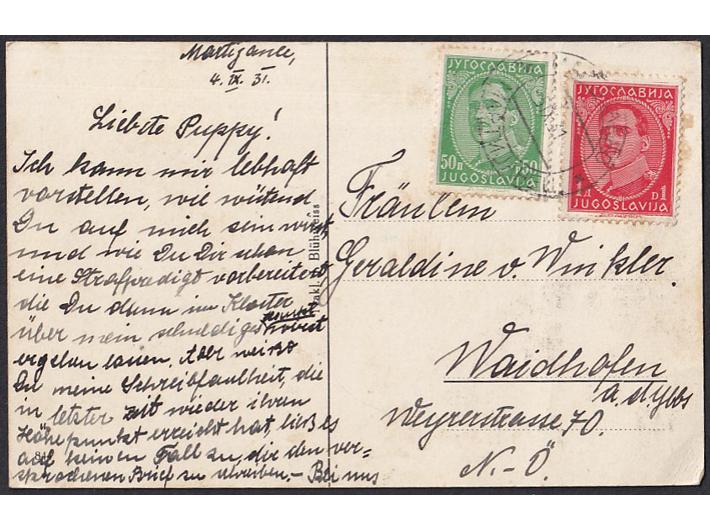 Martijanec,
4. IX. 31.
Liebste Puppy!
Ich kann mir lebhaft
vorstellen, wie wütend
Du auf mich sein wirst,
und wie Du Dir schon
eine Strafpredigt vorbereitest
die Du dann im Kloster
über mein schuldiges Haupt
ergehen lassen. Aber weisst
Du meine Schreibfaulheit, die
in letzter Zeit wieder ihren
Höhepunkt erreicht hat, liess es
auf keinen Fall zu, dir den ver-
sprochenen Brief zu schreiben. – Bei uns
Blühweiss
ЈУГОСЛАВИЈА
50п 0·50
JUGOSLAVIJA
ЈУГОСЛАВИЈА
1д D1
JUGOSLAVIJA
Fräulein
Geraldine v. Winkler.
Waidhofen
a. d Ybbs
Weyrerstrasse 70.
N.-Ö.